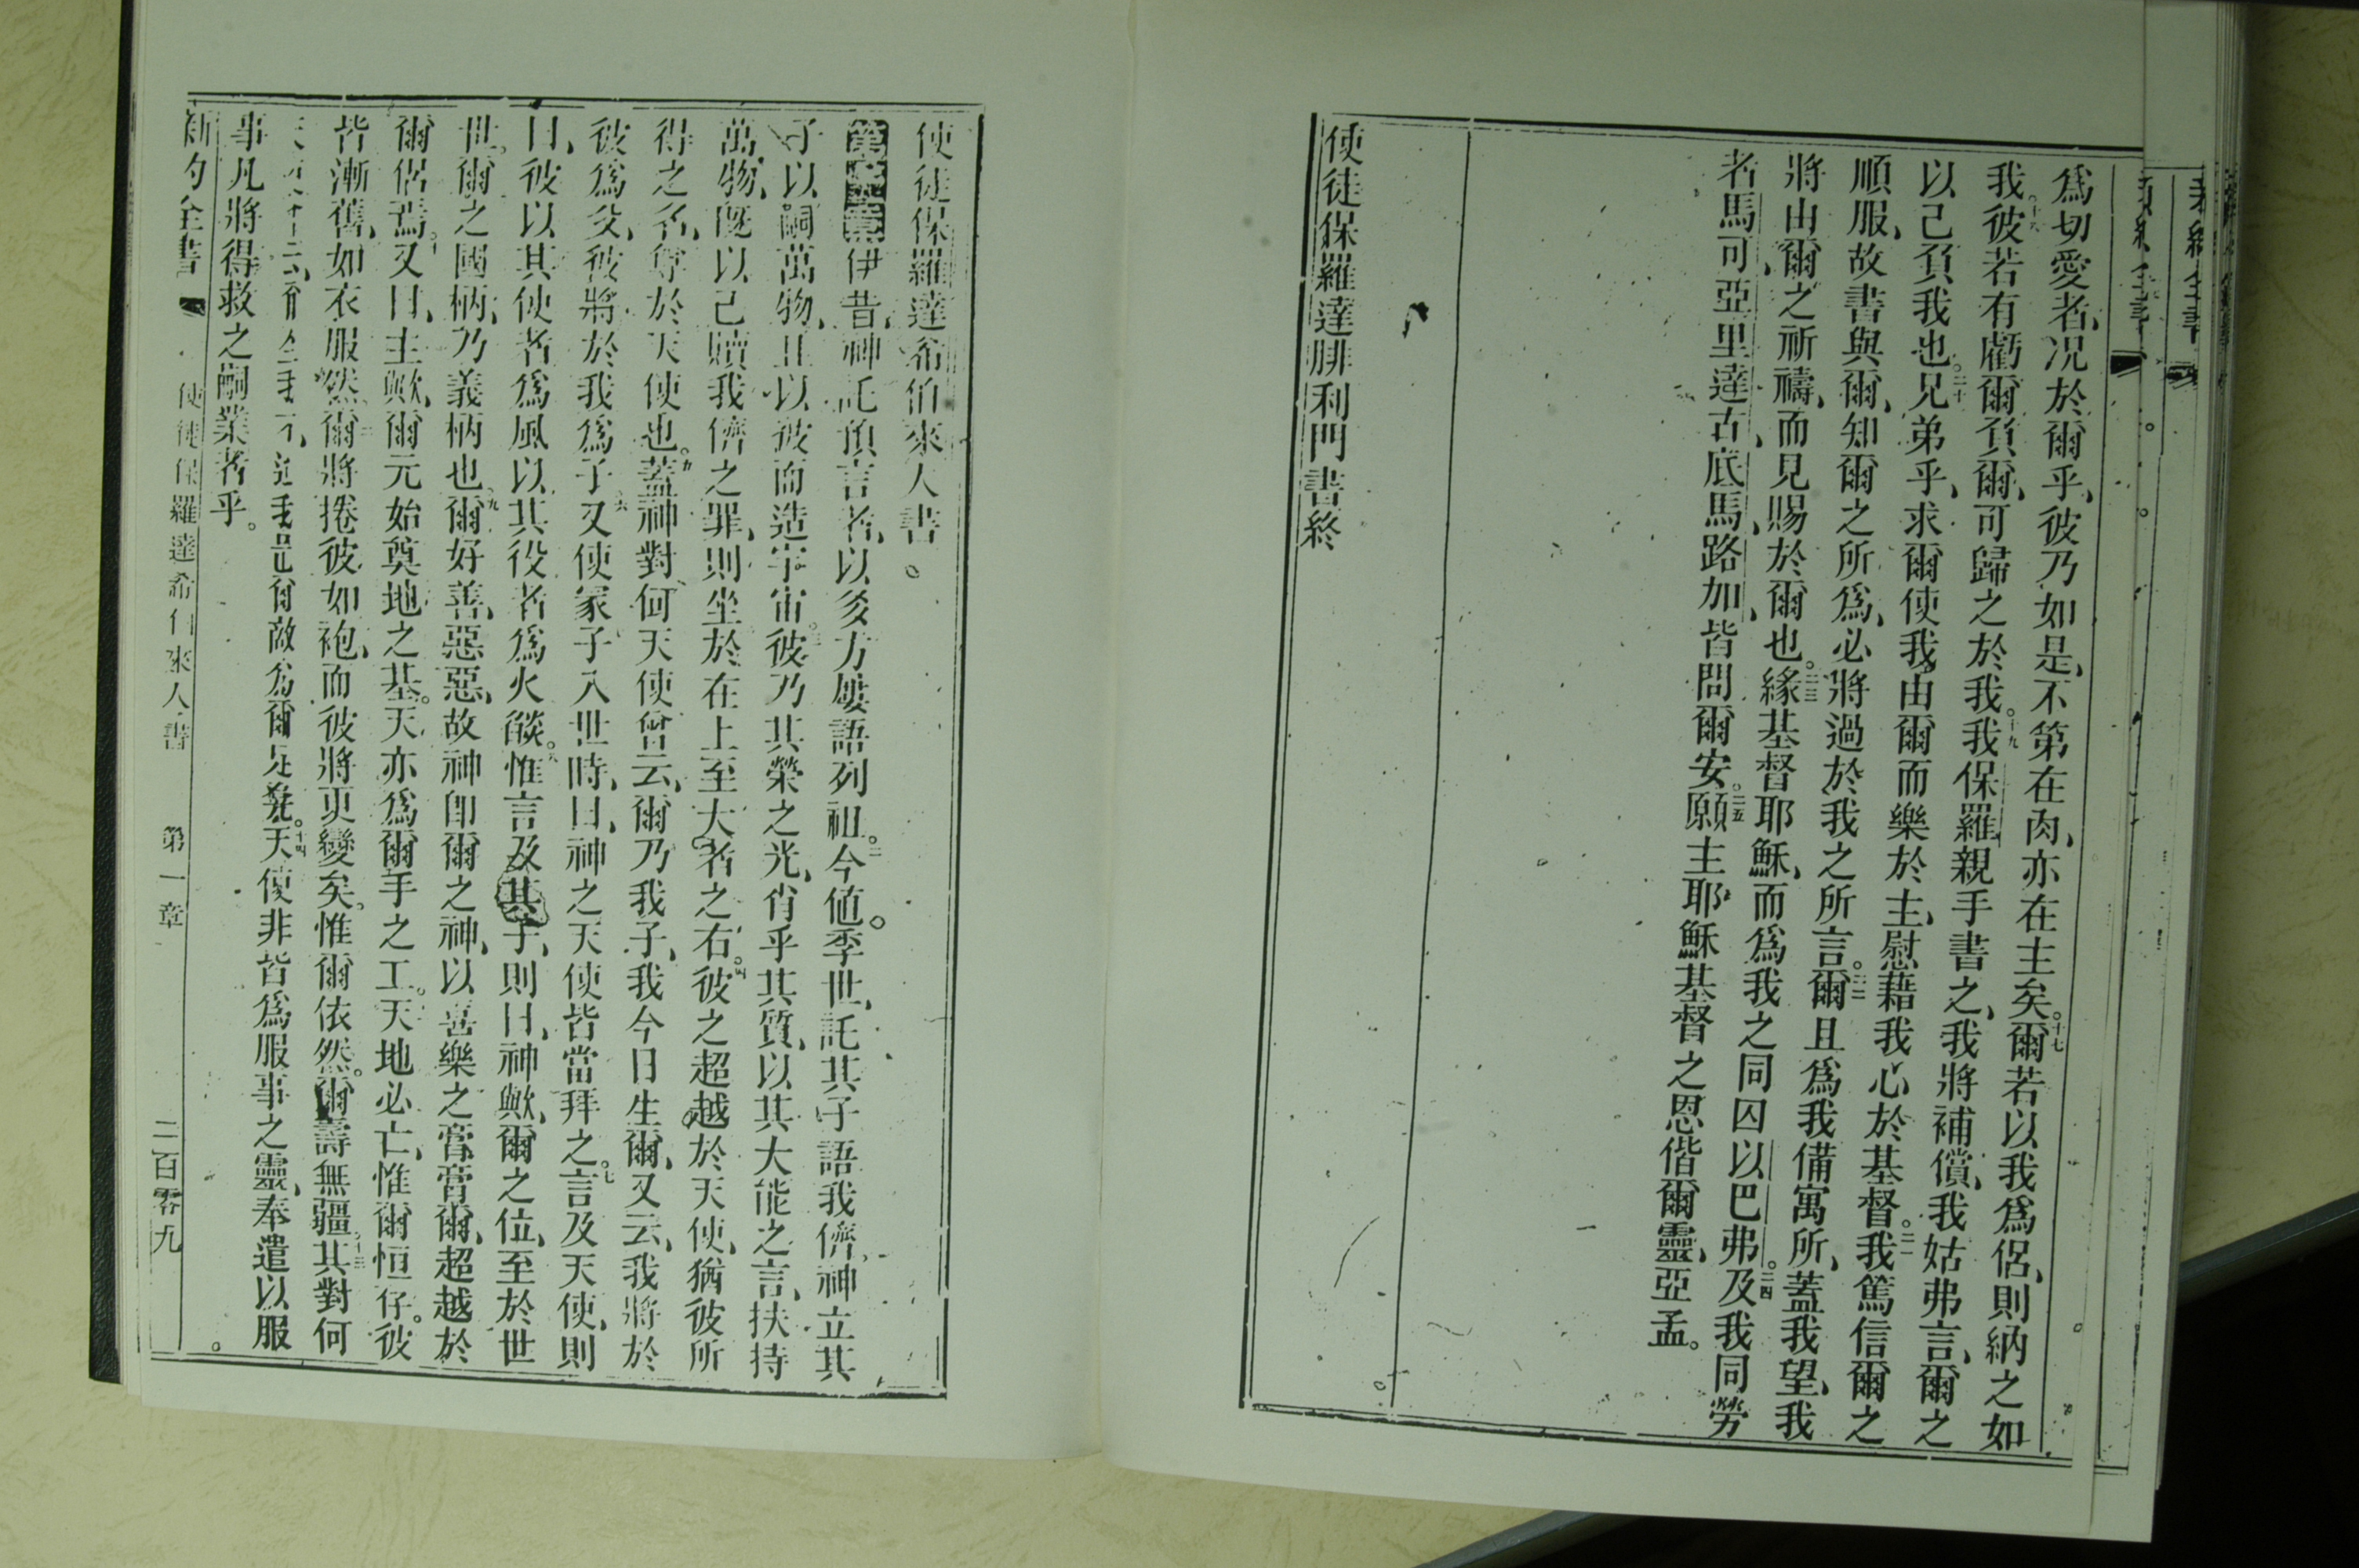 爲切愛者、况於爾乎、彼乃如是、不第在肉、亦在主矣。十七爾若以我爲侶、則納之如
我。十八彼若有虧爾負爾、可歸之於我。十九我保羅親手書之、我將補償、我姑弗言、爾之
以己負我也。二十兄弟乎、求爾使我由爾而樂於主、慰藉我心於基督。二一我篤信爾之
順服、故書與爾、知爾之所爲、必將過於我之所言。二二爾且爲我備寓所、蓋我望、我
將由爾之祈禱、而見賜於爾也。二三緣基督耶穌、而爲我之同囚以巴弗。二四及我同勞
者馬可亞里達古、底馬、路加、皆問爾安。二五願主耶穌基督之恩偕爾靈、亞孟。
使徒保羅達腓利門書終
使徒保羅達希伯來人書。
第一章伊昔神託預言者、以多方屢語列祖。二今値季世、託其子語我儕、神立其
子以嗣萬物、且以彼而造宇宙。三彼乃其榮之光、肖乎其質、以其大能之言、扶持
萬物、旣以己贖我儕之罪、則坐於在上至大者之右。四彼之超越於天使、猶彼所
得之名、尊於天使也。五蓋神對何天使曾云、爾乃我子、我今日生爾、又云、我將於
彼爲父、彼將於我爲子。六又使冢子入世時、曰、神之天使皆當拜之。七言及天使、則
曰、彼以其使者爲風、以其役者爲火燄。八惟言及其子、則曰、神歟、爾之位、至於世
世、爾之國柄、乃義柄也。九爾好善、惡惡、故神卽爾之神、以喜樂之膏膏爾、超越於
爾侶焉。十又曰、主歟、爾元始奠地之基。天亦爲爾手之工。天地必亡、惟爾恒存。彼
皆漸舊、如衣服然、爾將捲彼如袍、而彼將更變矣。惟爾依然。爾壽無疆。十三其對何
天使我爾敵爲爾足凳。十四天使非皆爲服事之靈、奉遣以服
事凡將得救之嗣業者乎。
新約全書 使徒保羅達希伯來人書 第一章 二百零九